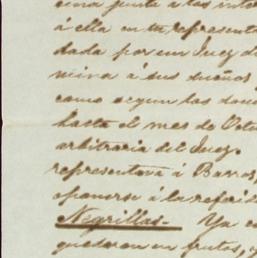 una junta a los inte
á ella en tu represent
dada por un Juez d
mina á sus dueños
como segun los docu
hasta el mes de Octu
arbitraria del Juez.
representará á Barros,
oponerse á la referid
Negrillas.- Ya e
quedaron en frutos, y